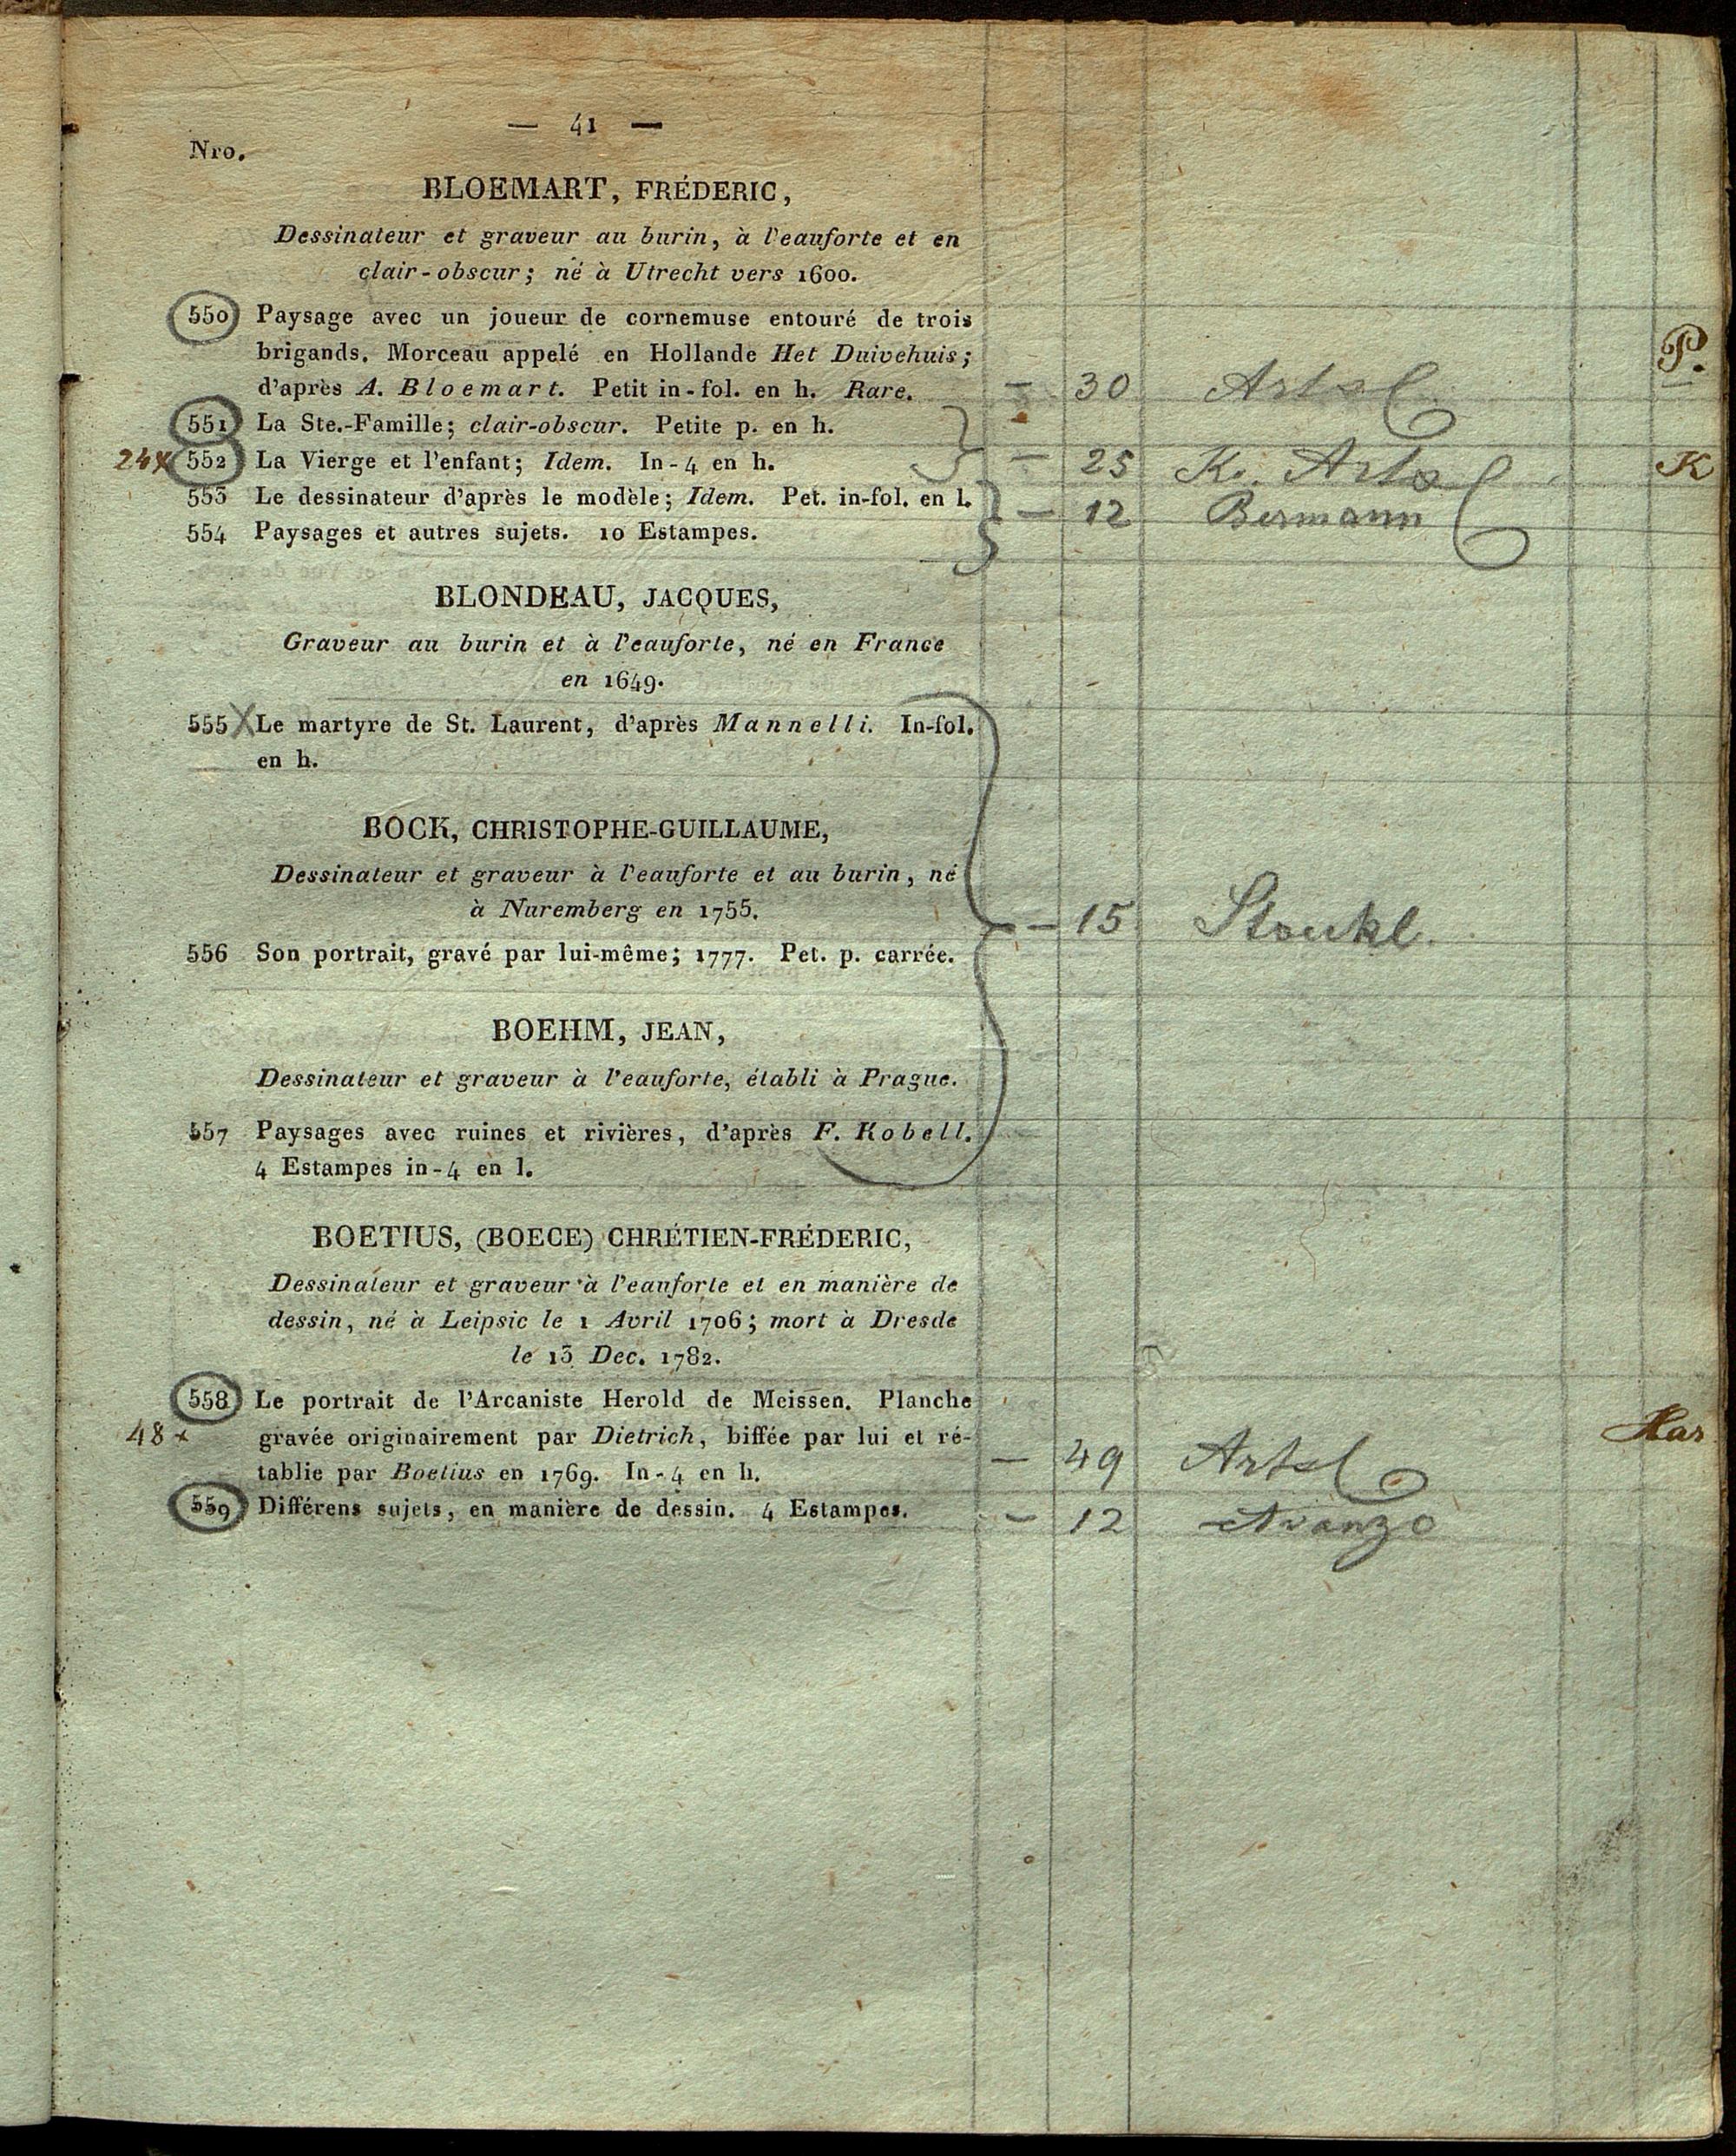 — 41 —
Nro.
BLOEMART, FRÉDERIC,
Dessinateur et graveur au burin, à l'eauforte et en
clair-obscur; né à Utrecht vers 1600.
550 Paysage avec un joueur de cornemuse entouré de trois
brigands. Morceau appelé en Hollande Het Duivehuis; P.
d'après A. Bloemart. Petit in-fol. en h. Rare. — 30 Artal
551 La Ste.-Famille; clair-obscur. Petite p. en h.
24x 552 La Vierge et l'enfant; Idem. In-4 en h. — 25 K. Arta K
553 Le dessinateur d'après le modèle; Idem. Pet. in-fol. en l. — 12 Bermann
554 Paysages et autres sujets. 10 Estampes.
BLONDEAU, JACQUES,
Graveur au burin et à l'eauforte, né en France
en 1649.
555 X Le martyre de St. Laurent, d'après Mannelli. In-fol.
en h.
BOCK, CHRISTOPHE-GUILLAUME,
Dessinateur et graveur à l'eauforte et au burin, né
à Nuremberg en 1755. — 15 Stoukl
556 Son portrait, gravé par lui-même; 1777. Pet. p. carrée.
BOEHM, JEAN,
Dessinateur et graveur à l'eauforte, établi à Prague.
557 Paysages avec ruines et rivières, d'après F. Kobell.
4 Estampes in-4 en l.
BOETIUS, (BOECE) CHRÉTIEN-FRÉDERIC,
Dessinateur et graveur à l'eauforte et en manière de
dessin, né à Leipsic le 1 Avril 1706; mort à Dresde
le 13 Dec. 1782.
558 Le portrait de l'Arcaniste Herold de Meissen. Planche
48x gravée originairement par Dietrich, biffée par lui et ré- Har
tablie par Boetius en 1769. In-4 en h. — 49 Artal
559 Différens sujets, en manière de dessin. 4 Estampes. — 12 Avanzo